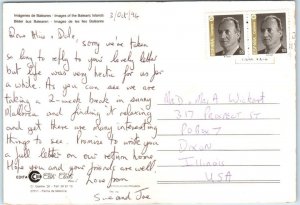 Imágenes de Baleares / Images of the Balearic Islands
Bilder aus Balearen / Images de les Illes Balears
3/Oct/96
Dear Mike & Dale,
Sorry we've taken
so long to reply to your lovely letter
but life was very hectic for us for
a while. As you can see we are
taking a 2-week break in sunny
Mallorca and finding it relaxing
and yet there are many interesting
things to see. Promise to write you
a full letter on our return home.
Hope you and your friends are well.
Love from
Sue and Joe
Mr D, Mr A
317
Dixon
Illinois
USA